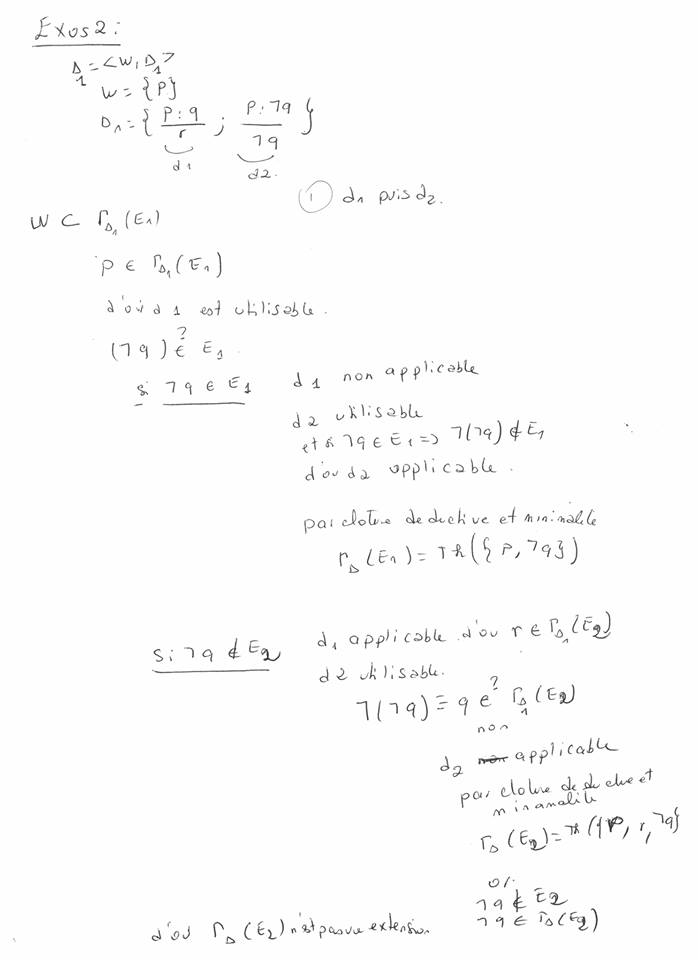 Exos 2 :
Δ1 = <W, D1>
W = {P}
D1 = { P : q / r ; P : ¬q / ¬q }
d1 d2.
① d1 puis d2.
W ⊂ ΓΔ1(E1)
p ∈ ΓΔ1(E1)
d'où d1 est utilisable.
(¬q) ∈? E1
si ¬q ∈ E1 d1 non applicable
d2 utilisable
et si ¬q ∈ E1 => ¬(¬q) ∉ E1
d'où d2 applicable.
par cloture deductive et minimalite
ΓΔ(E1) = Th({P, ¬q})
Si ¬q ∉ E2 d1 applicable d'où r ∈ ΓΔ1(E2)
d2 utilisable.
¬(¬q) ≡ q ∈? ΓΔ1(E2)
non
d2 non applicable
par cloture deductive et
minamalite
ΓΔ(E2) = Th({P, r, ¬q}
or
¬q ∉ E2
¬q ∈ ΓΔ(E2)
d'où ΓΔ(E2) n'est pas une extension